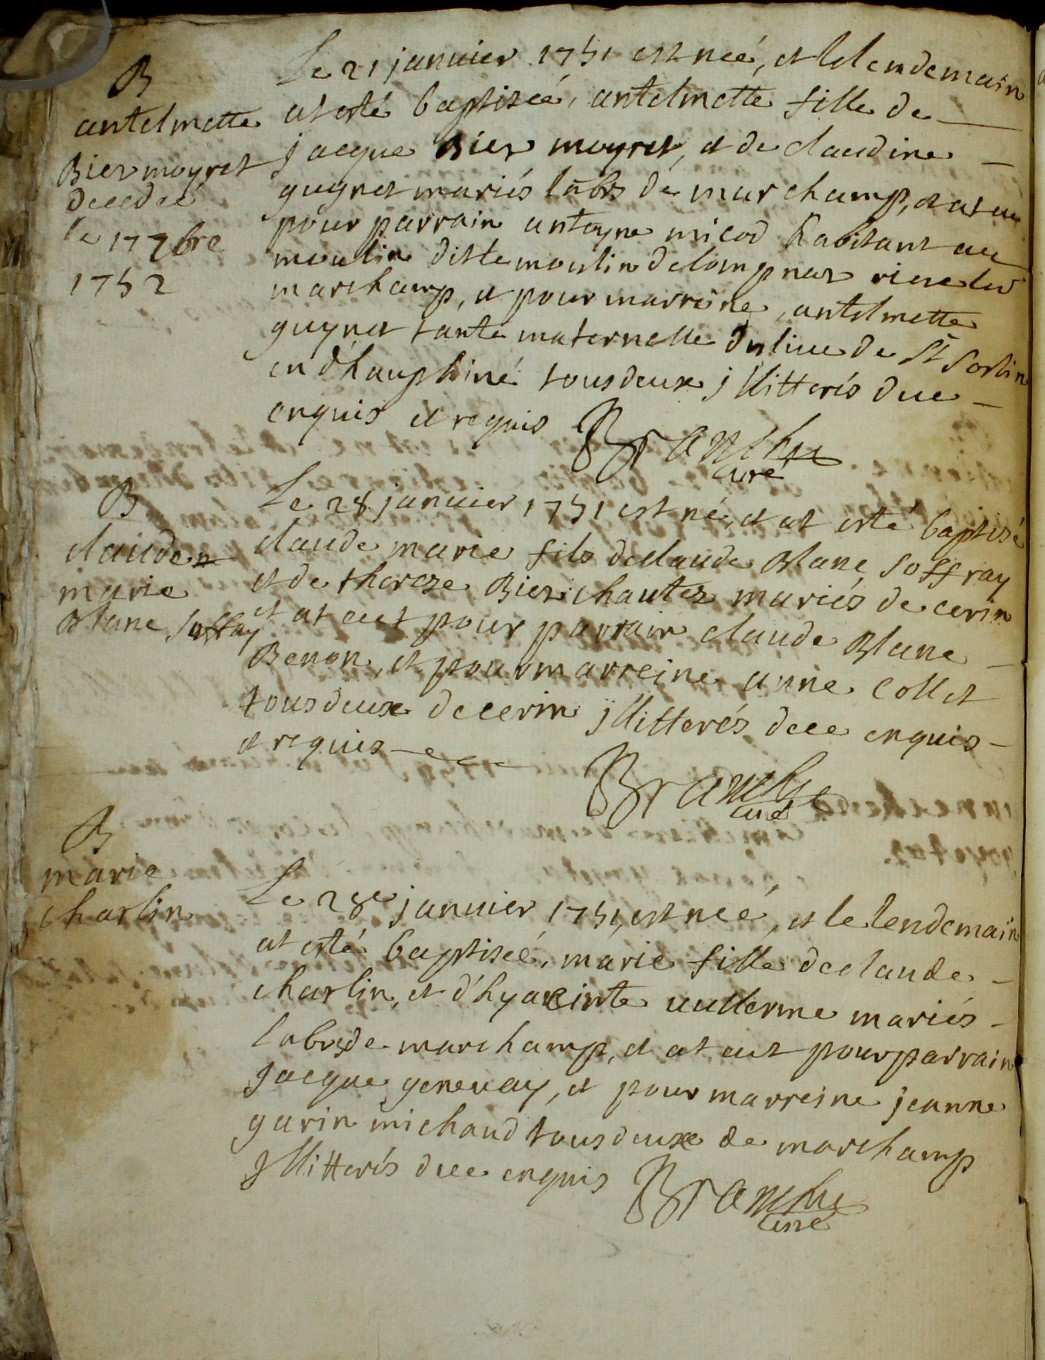 B
antelmette
Bier moyret
decedeé
le 17 7bre
1752
Le 21 janvier 1751 est neé, et le lendemain
at esté baptiseé, antelmette fille de
jacque Bier moyret, et de claudine
guynet mariés labrs de marchamp, et at eu
pour parrain antoyne micod habitant au
moulin dit le moulin de lompnaz riere led
marchamp, et pour marreine, antelmette
guynet tante maternelle du lieu de St Sorlin
en d'hauphiné tous deux jllitterés duc
enquis et requis Branche
curé
B
claude
marie
Blanc, Soffray
Le 28 janvier 1751 est né, et at esté baptisé
claude marie fils de claude Blanc Soffray
et de thereze Bier chautez mariés de cerin
et at eut pour parrain claude Blanc
Benon, et pour marreine anne Collet
tous deux de cerin jllitterés dece enquis
et requis
Branche
curé
B
marie
charlin
Le 28e janvier 1751 est neé, et le lendemain
at esté baptiseé, marie fille de claude
charlin, et d'hyacinte vullerme mariés
labrs de marchamp, et at eut pour parrain
jacque genevay, et pour marreine jeanne
garin michaud tous deux de marchamp
jllitterés dece enquis Branche
curé